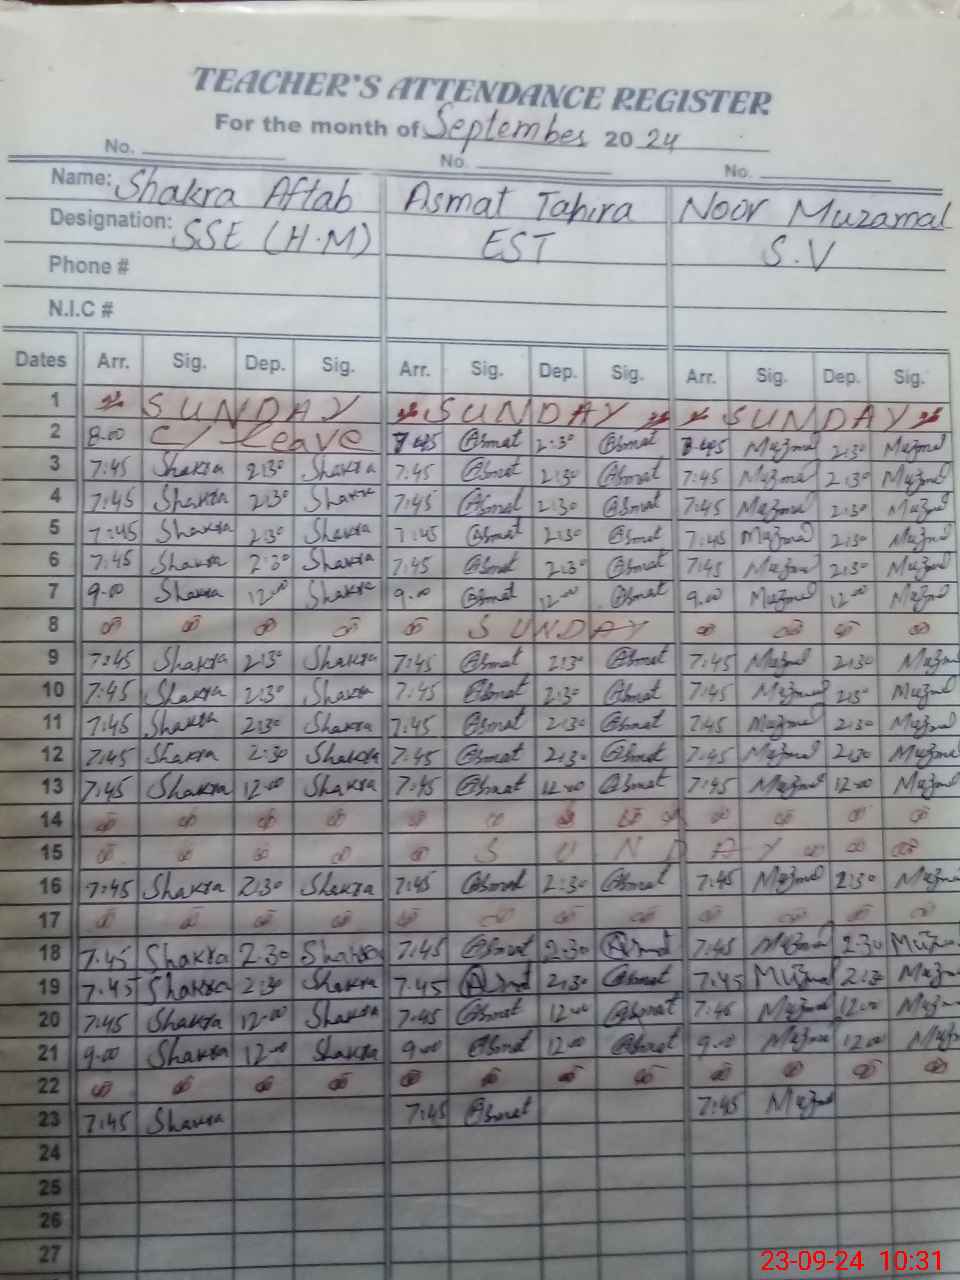 TEACHER'S ATTENDANCE REGISTER
For the month of September 20 24
No. No. No.
Name: Shakra Aftab Asmat Tahira Noor Muzamal
Designation: SSE (H.M) EST S.V
Phone #
N.I.C #
Dates Arr. Sig. Dep. Sig. Arr. Sig. Dep. Sig. Arr. Sig. Dep. Sig.
1 SUNDAY SUNDAY SUNDAY
2 8.00 C/ leave 7:45 Asmat 2:30 Asmat 7:45 Muzmal 2:30 Muzmal
3 7:45 Shakra 2:30 Shakra 7:45 Asmat 2:30 Asmat 7:45 Muzmal 2:30 Muzmal
4 7:45 Shakra 2:30 Shakra 7:45 Asmat 2:30 Asmat 7:45 Muzmal 2:30 Muzmal
5 7:45 Shakra 2:30 Shakra 7:45 Asmat 2:30 Asmat 7:45 Muzmal 2:30 Muzmal
6 7:45 Shakra 2:30 Shakra 7:45 Asmat 2:30 Asmat 7:45 Muzmal 2:30 Muzmal
7 9.00 Shakra 12.00 Shakra 9.00 Asmat 12.00 Asmat 9.00 Muzmal 12.00 Muzmal
8 SUNDAY
9 7:45 Shakra 2:30 Shakra 7:45 Asmat 2:30 Asmat 7:45 Muzmal 2:30 Muzmal
10 7:45 Shakra 2:30 Shakra 7:45 Asmat 2:30 Asmat 7:45 Muzmal 2:30 Muzmal
11 7:45 Shakra 2:30 Shakra 7:45 Asmat 2:30 Asmat 7:45 Muzmal 2:30 Muzmal
12 7:45 Shakra 2:30 Shakra 7:45 Asmat 2:30 Asmat 7:45 Muzmal 2:30 Muzmal
13 7:45 Shakra 12.00 Shakra 7:45 Asmat 12.00 Asmat 7:45 Muzmal 12.00 Muzmal
14
15 SUNDAY
16 7:45 Shakra 2:30 Shakra 7:45 Asmat 2:30 Asmat 7:45 Muzmal 2:30 Muzmal
17
18 7:45 Shakra 2:30 Shakra 7:45 Asmat 2:30 Asmat 7:45 Muzmal 2:30 Muzmal
19 7:45 Shakra 2:30 Shakra 7:45 Asmat 2:30 Asmat 7:45 Muzmal 2:30 Muzmal
20 7:45 Shakra 12.00 Shakra 7:45 Asmat 12.00 Asmat 7:45 Muzmal 12.00 Muzmal
21 9.00 Shakra 12.00 Shakra 9.00 Asmat 12.00 Asmat 9.00 Muzmal 12.00 Muzmal
22
23 7:45 Shakra 7:45 Asmat 7:45 Muzmal
24
25
26
27
23-09-24 10:31